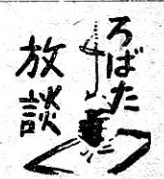 ろばた
放談